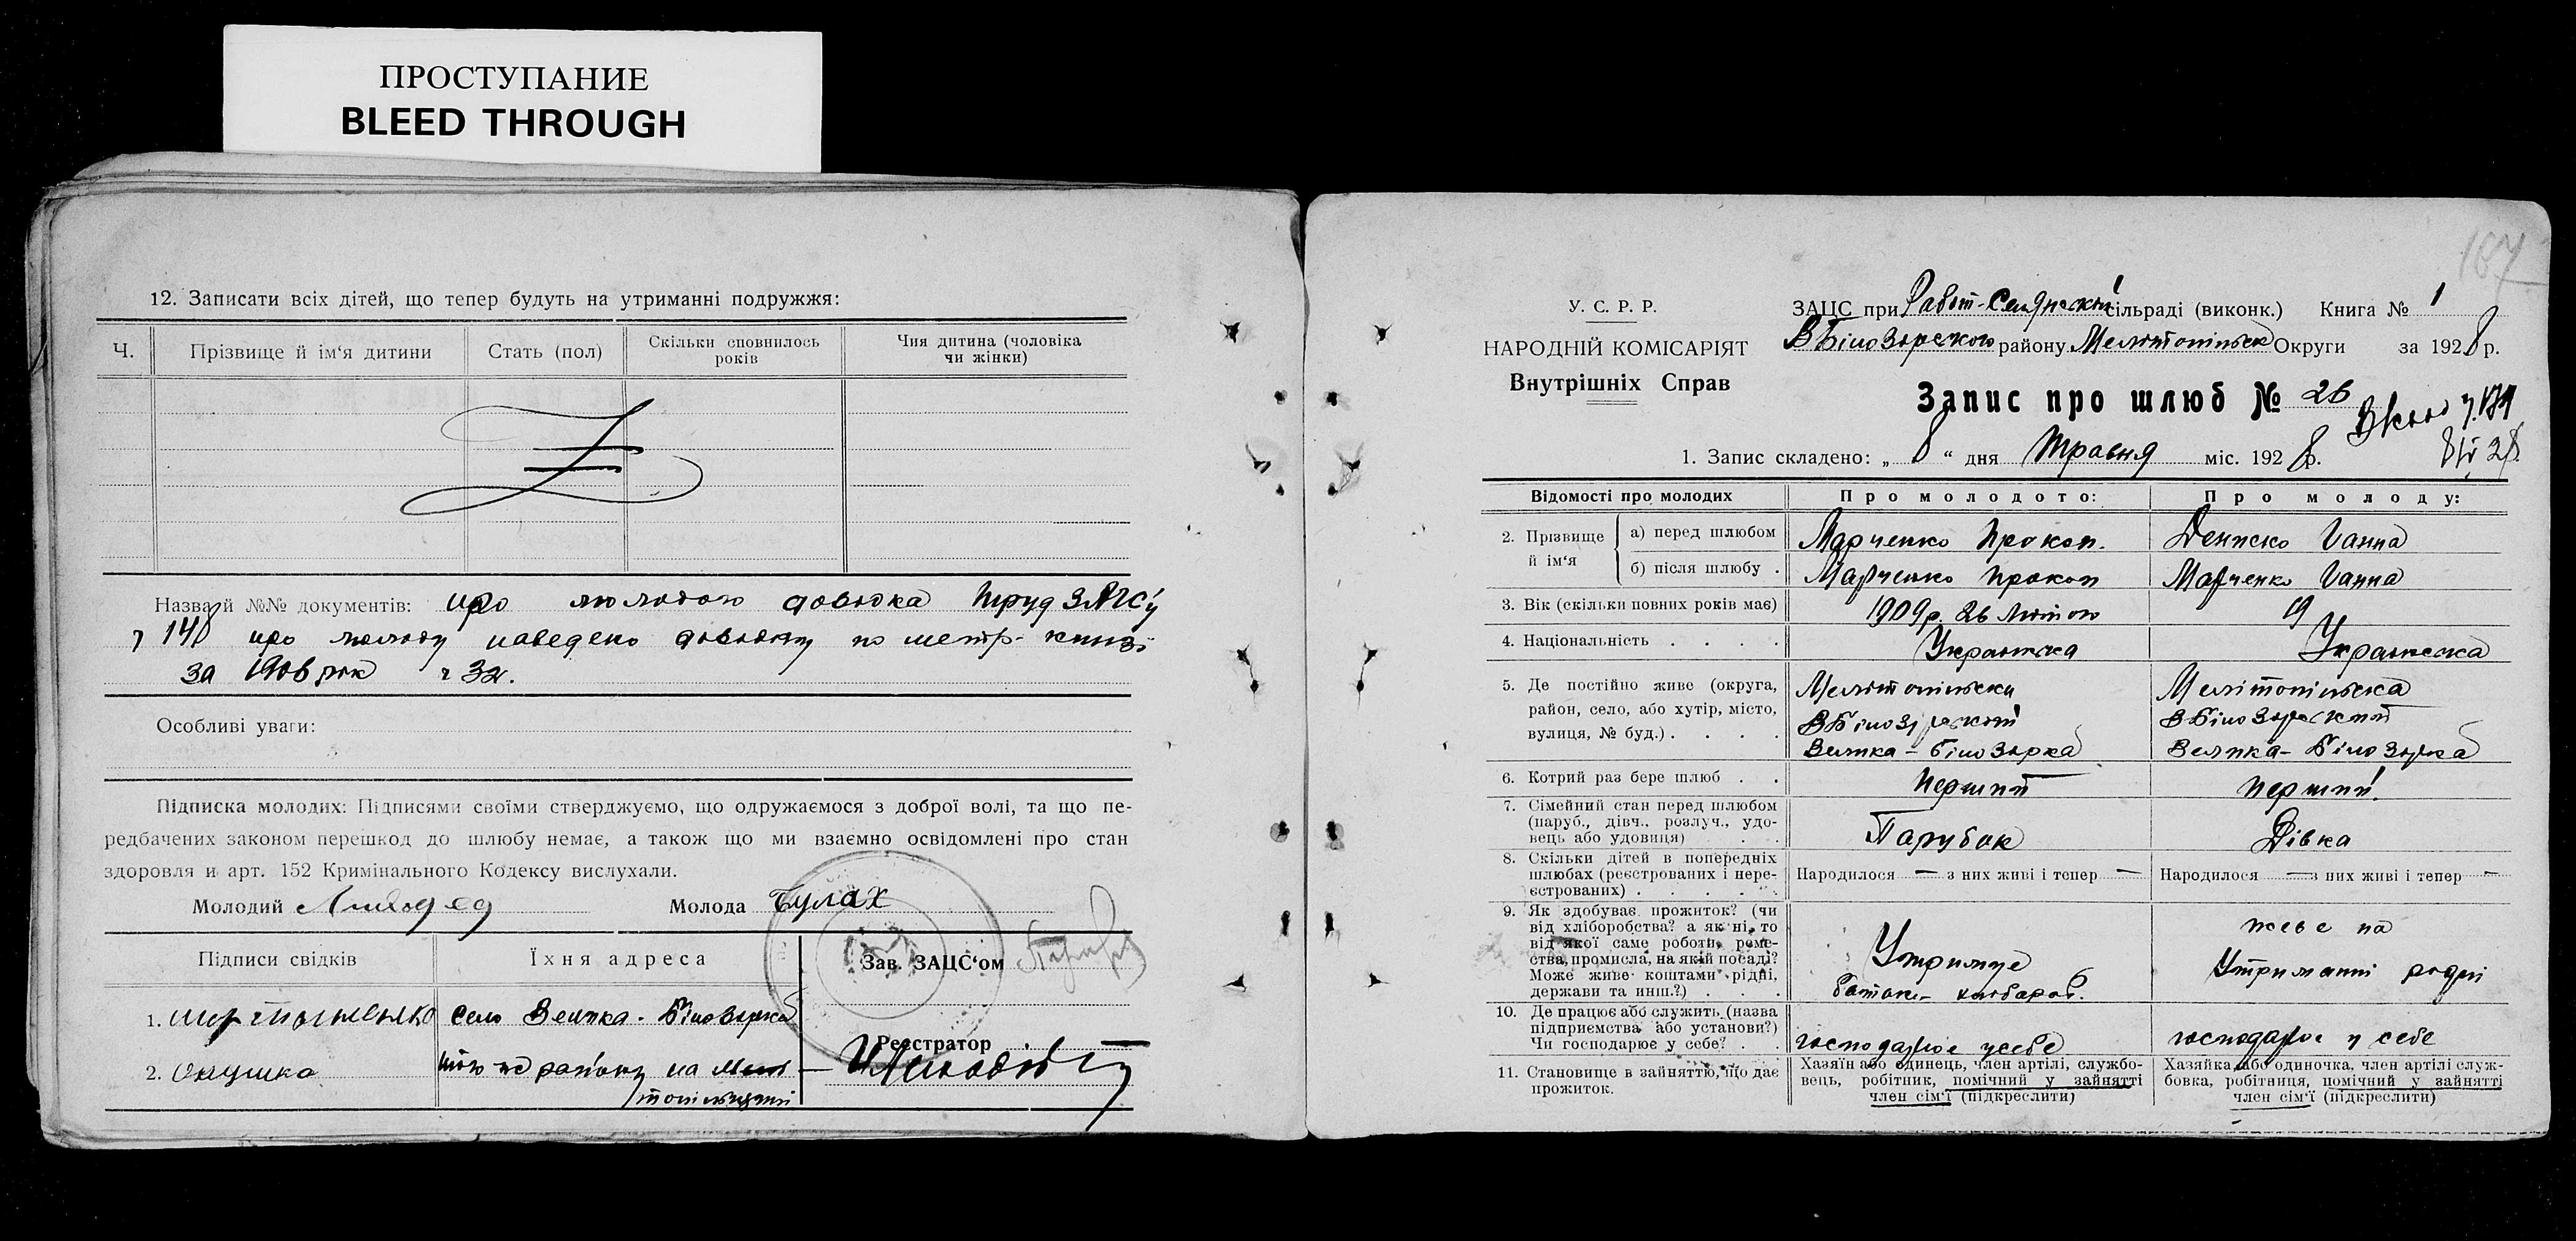 ПРОСТУПАНИЕ
BLEED THROUGH
12. Записати всіх дітей, що тепер будуть на утриманні подружжя:
Ч. Прізвище й ім‘я дитини Стать (пол) Скільки сповнилось років Чия дитина (чоловіка чи жінки)
Назва й №№ документів: про молодого довідка
148 про молоду наведено довідку по метр. книзі
за 1906 рік ч 32.
Особливі уваги:
Підписка молодих: Підписями своїми стверджуємо, що одружаємося з доброї волі, та що пе-
редбачених законом перешкод до шлюбу немає, а також що ми взаємно освідомлені про стан
здоровля и арт. 152 Кримінального Кодексу вислухали.
Молодий Молода Булах
Підписи свідків Їхня адреса Зав. ЗАЦС‘ом
1. село Велика-Білозорка
Реєстратор
2. того же району на
187
У. С. Р. Р. ЗАЦС при Работ-Селянскій сільраді (виконк.) Книга № 1
НАРОДНІЙ КОМІСАРІЯТ ВБілозорского району Мелітопільск Округи за 1928 р.
Внутрішніх Справ
Запис про шлюб № 26
1. Запис складено: „ 8 “ дня Травня міс. 1928 р.
Відомості про молодих Про молодого: Про молоду:
2. Прізвище й ім‘я а) перед шлюбом Марченко Прокоп. Ганна
б) після шлюбу . Марченко Прокоп Марченко Ганна
3. Вік (скільки повних років має) 1909 р. 26 Лютого 19
4. Національність . . . . Украінска Украінска
5. Де постійно живе (округа, Мелітопільска Мелітопільска
район, село, або хутір, місто, ВБілозорскій ВБілозорский
вулиця, № буд.) . . . . Велика-Білозорка Велика-Білозорка
6. Котрий раз бере шлюб . . Перший Перший
7. Сімейний стан перед шлюбом
(паруб., дівч., розлуч., удо-
вець або удовиця) . . Парубок Дівка
8. Скільки дітей в попередніх
шлюбах (реєстрованих і нере- Народилося — з них живі і тепер — Народилося — з них живі і тепер —
єстрованих) . . . . . .
9. Як здобуває прожиток? (чи
від хліборобства? а як ні, то живе на
від якої саме роботи, реме-
ства, промисла, на якій посаді? Утримує Утриманні рідні
Може живе коштами рідні,
держави та инш.?) . . .
10. Де працює або служить (назва
підприємства або установи?)
Чи господарює у себе? . . господарює усебе господарює у себе
11. Становище в зайняттю, що дає
прожиток.
Хазяїн або одинець, член артілі, службо-
вець, робітник, помічний у зайнятті
член сім‘ї (підкреслити)
Хазяйка або одиночка, член артілі служ-
бовка, робітниця, помічний у зайнятті
член сім‘ї (підкреслити)